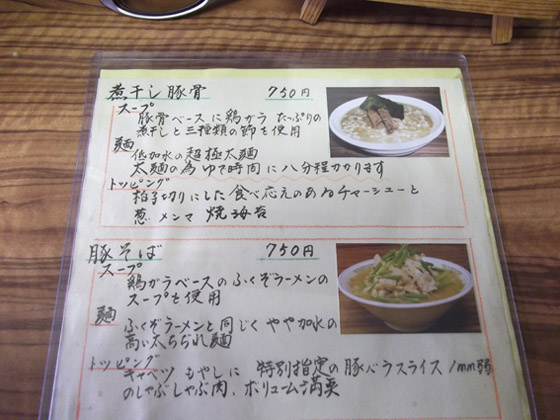 煮干し豚骨 750円
スープ
豚骨ベースに鶏ガラ たっぷりの
煮干しと三種類の節を使用
麺
低加水の超極太麺
太麺の為ゆで時間に八分程かかります
トッピング
拍子切りにした食べ応えのあるチャーシューと
葱 メンマ 焼海苔
豚そば 750円
スープ
鶏ガラベースのふくぞラーメンの
スープを使用
麺
ふくぞラーメンと同じくやや加水の
高い太ちぢれ麺
トッピング
キャベツ もやしに 特別指定の豚バラスライス1mm弱
のしゃぶしゃぶ肉、ボリューム満点